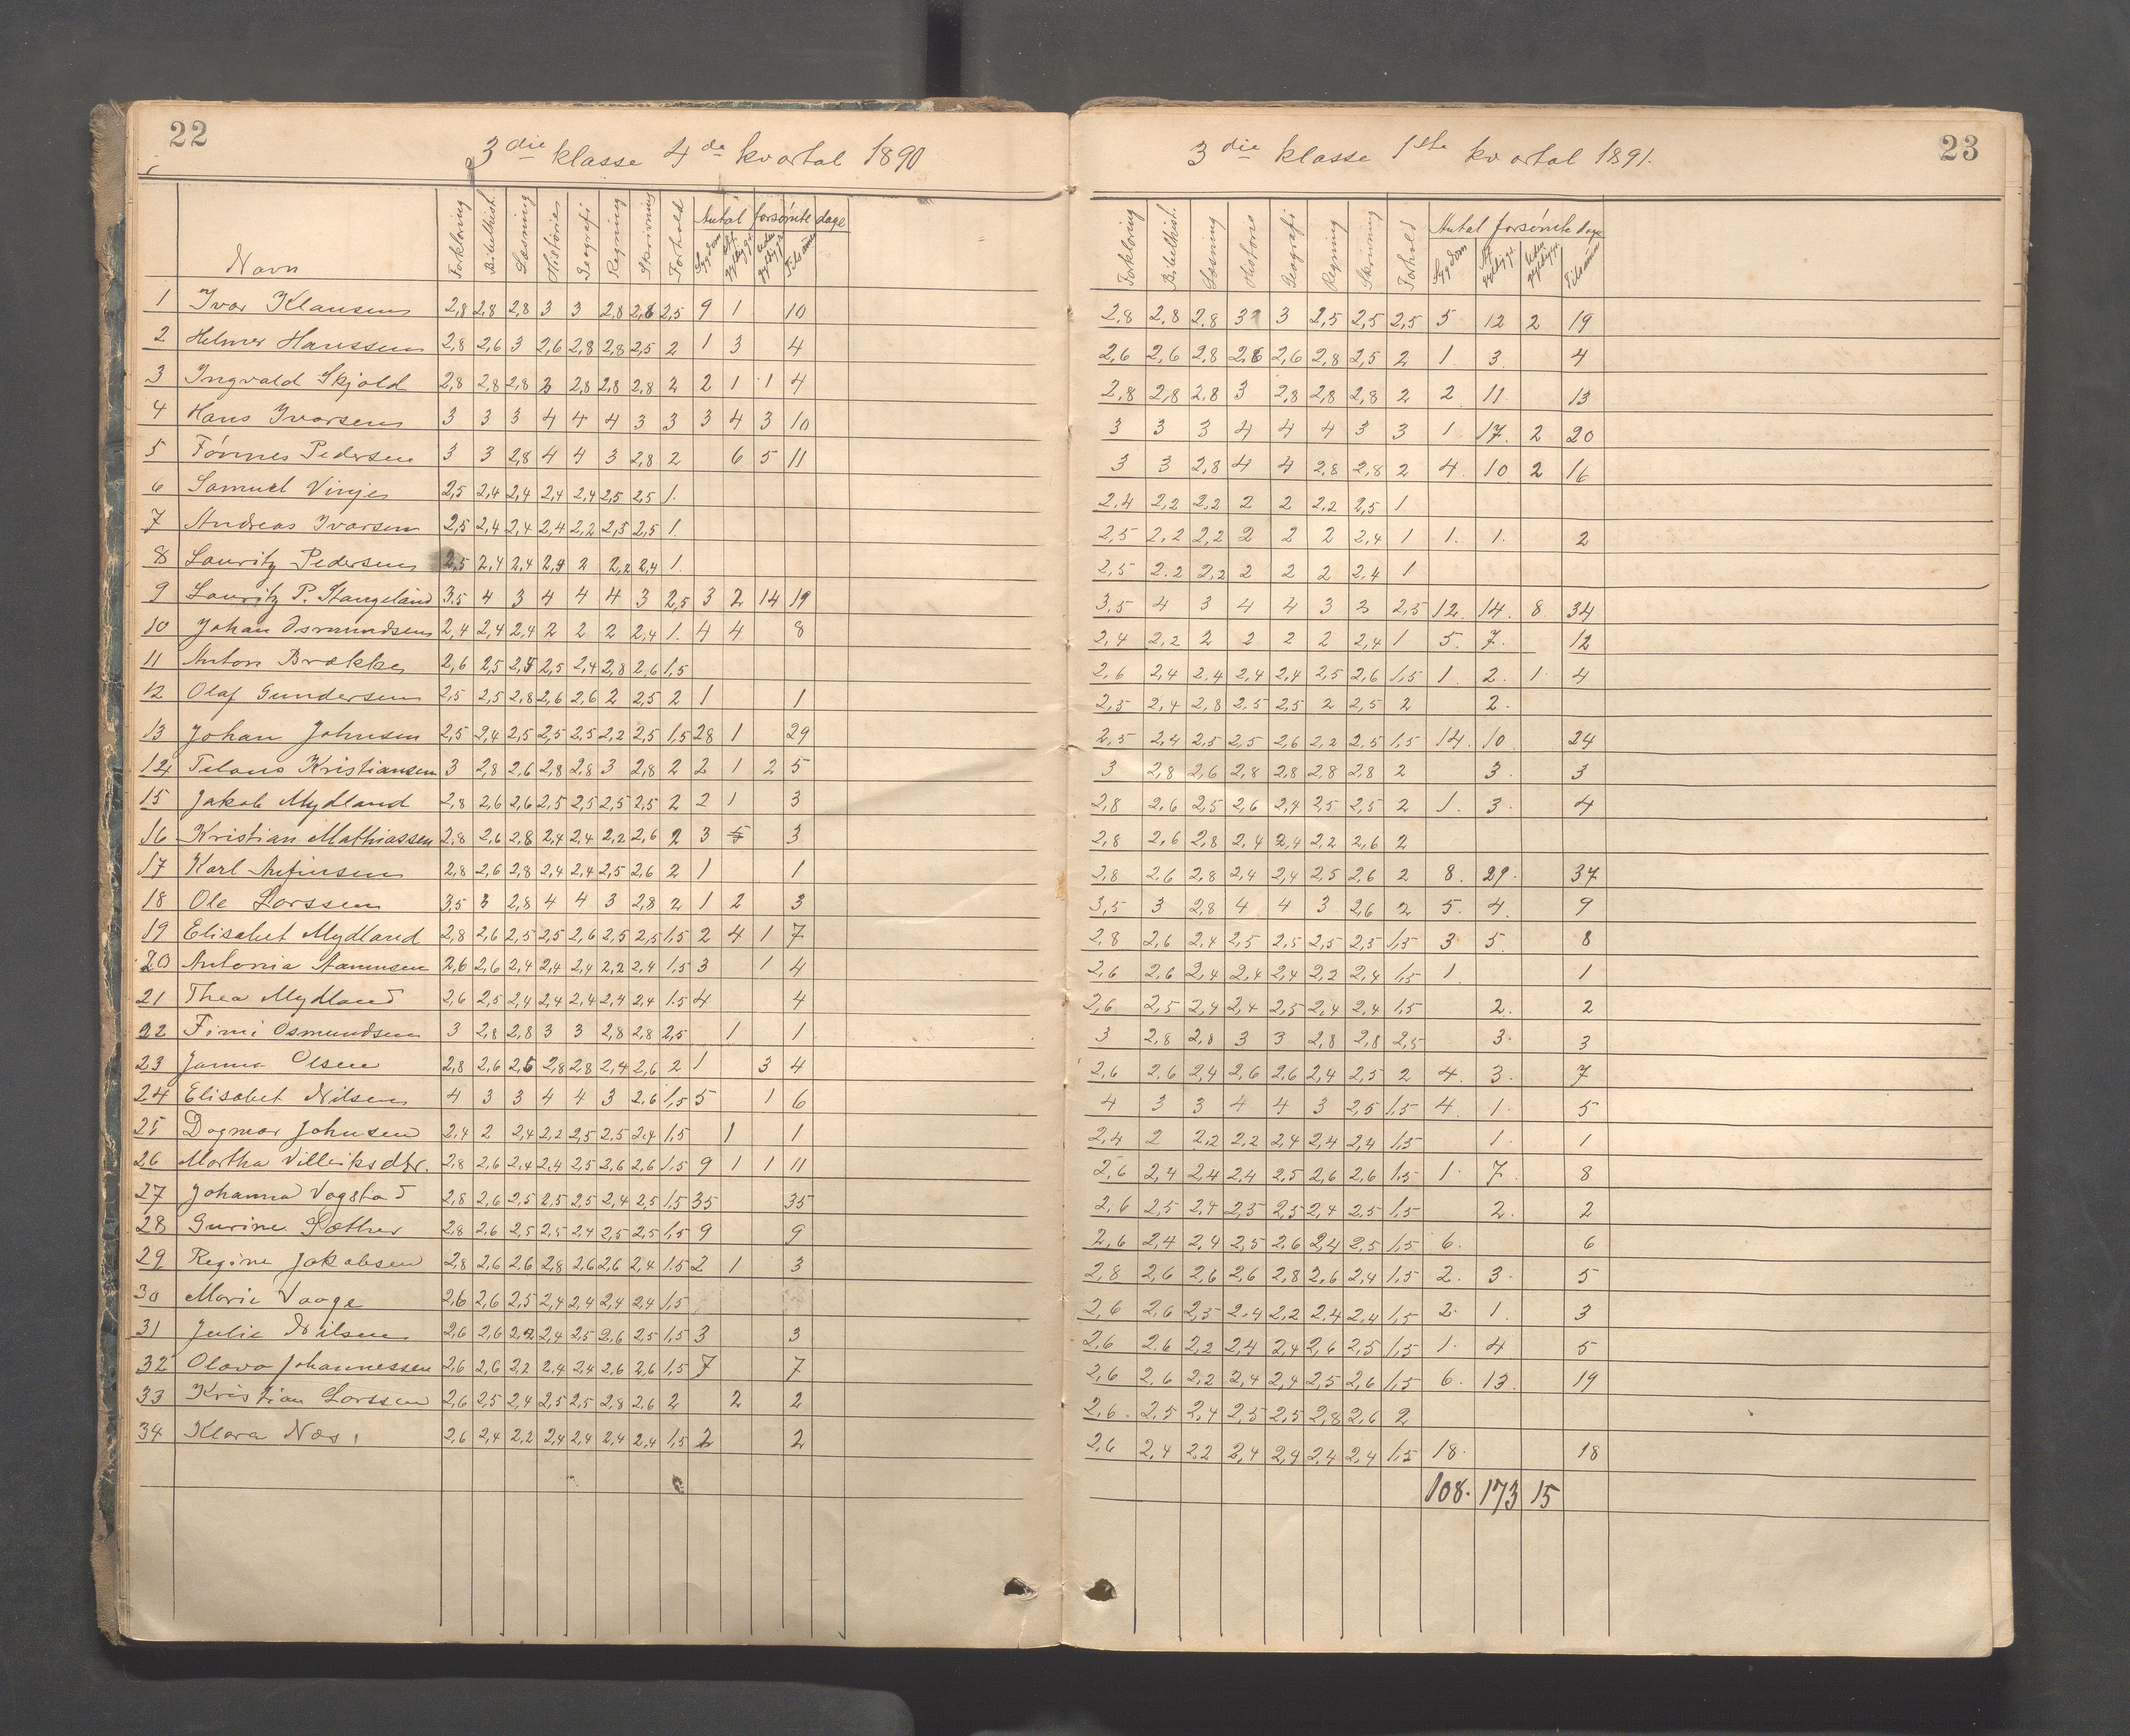 22
3die klasse 4de kvartal 1890
Navn Forklaring Bibelhist. Læsning Historie Geografi Regning Skrivning Forhold Antal forsömte dage
Sygdom Tilsammen
1 Ivar Klausen 2,8 2,8 2,8 3 3 2,8 2,6 2,5 9 1 10
2 Helmer Hanssen 2,8 2,6 3 2,6 2,8 2,8 2,5 2 1 3 4
3 Ingvald Skjold 2,8 2,8 2,8 3 2,8 2,8 2,8 2 2 1 1 4
4 Hans Ivarsen 3 3 3 4 4 4 3 3 3 4 3 10
5 Tönnes Pedersen 3 3 2,8 4 4 3 2,8 2 6 5 11
6 Samuel Vinje 2,5 2,4 2,4 2,4 2,4 2,5 2,5 1.
7 Andreas Ivarsen 2,5 2,4 2,4 2,4 2,2 2,5 2,5 1.
8 Lauritz Pedersen 2,5 2,4 2,4 2,4 2 2,2 2,4 1.
9 Lauritz P. Stangeland 3,5 4 3 4 4 4 3 2,5 3 2 14 19
10 Johan Osmundsen 2,4 2,4 2,4 2 2 2 2,4 1. 4 4 8
11 Anton Brække 2,6 2,5 2,5 2,5 2,4 2,8 2,6 1,5
12 Olaf Gundersen 2,5 2,5 2,8 2,6 2,6 2 2,5 2 1 1
13 Johan Johnsen 2,5 2,4 2,5 2,5 2,5 2,2 2,5 1,5 28 1 29
14 Kristiansen 3 2,8 2,6 2,8 2,8 3 2,8 2 2 1 2 5
15 Jakob Mydland 2,8 2,6 2,6 2,5 2,5 2,5 2,5 2 2 1 3
16 Kristian Mathiassen 2,8 2,6 2,8 2,4 2,4 2,2 2,6 2 3 3
17 Karl Arfinsen 2,8 2,6 2,8 2,4 2,4 2,5 2,6 2 1 1
18 Ole Larssen 3,5 3 2,8 4 4 3 2,8 2 1 2 3
19 Elisabet Mydland 2,8 2,6 2,5 2,5 2,6 2,5 2,5 1,5 2 4 1 7
20 Antonia Aanensen 2,6 2,6 2,4 2,4 2,4 2,2 2,4 1,5 3 1 4
21 Thea Mydland 2,6 2,5 2,4 2,4 2,4 2,4 2,4 1,5 4 4
22 Fimi Osmundsen 3 2,8 2,8 3 3 2,8 2,8 2,5 1 1
23 Janna Olsen 2,8 2,6 2,5 2,8 2,8 2,4 2,6 2 1 3 4
24 Elisabet Nilsen 4 3 3 4 4 3 2,6 1,5 5 1 6
25 Dagmar Johnsen 2,4 2 2,4 2,2 2,5 2,5 2,4 1,5 1 1
26 Martha Villiksdtr. 2,8 2,6 2,4 2,4 2,5 2,6 2,6 1,5 9 1 1 11
27 Johanna Vagstad 2,8 2,6 2,5 2,5 2,5 2,4 2,5 1,5 35 35
28 Gurine Sæther 2,8 2,6 2,5 2,5 2,4 2,5 2,5 1,5 9 9
29 Regine Jakobsen 2,8 2,6 2,6 2,8 2,6 2,6 2,4 1,5 2 1 3
30 Marie Vaage 2,6 2,6 2,5 2,4 2,4 2,4 2,4 1,5
31 Julie Nilsen 2,6 2,6 2,2 2,4 2,5 2,6 2,5 1,5 3 3
32 Olava Johannessen 2,6 2,6 2,2 2,4 2,4 2,6 2,6 1,5 7 7
33 Kristian Larssen 2,6 2,5 2,4 2,5 2,5 2,8 2,6 2 2 2
34 Klara Næs 2,6 2,4 2,2 2,4 2,4 2,4 2,4 1,5 2 2
23
3die klasse 1ste kvartal 1891.
Forklaring Bibelhist. Læsning Historie Geografi Regning Skrivning Forhold Antal forsömte dage
Sygdom Tilsammen
2,8 2,8 2,8 3 3 2,5 2,5 2,5 5 12 2 19
2,6 2,6 2,8 2,6 2,6 2,8 2,5 2 1. 3. 4
2,8 2,8 2,8 3 2,8 2,8 2,8 2 2. 11. 13
3 3 3 4 4 4 3 3 1. 17. 2 20
3 3 2,8 4 4 2,8 2,8 2 4. 10 2 16
2,4 2,2 2,2 2 2 2,2 2,5 1
2,5 2,2 2,2 2 2 2 2,4 1 1. 1. 2
2,5 2,2 2,2 2 2 2 2,4 1
3,5 4 3 4 4 3 3 2,5 12. 14. 8. 34
2,4 2,2 2 2 2 2 2,4 1 5. 7. 12
2,6 2,4 2,4 2,4 2,4 2,5 2,6 1,5 1. 2. 1. 4
2,5 2,4 2,8 2,5 2,5 2 2,5 2 2.
2,5 2,4 2,5 2,5 2,6 2,2 2,5 1,5 14. 10. 24
3 2,8 2,6 2,8 2,8 2,8 2,8 2 3. 3
2,8 2,6 2,5 2,6 2,4 2,5 2,5 2 1. 3. 4
2,8 2,6 2,8 2,4 2,4 2,2 2,6 2
2,8 2,6 2,8 2,4 2,4 2,5 2,6 2 8. 29. 37
3,5 3 2,8 4 4 3 2,6 2 5. 4. 9
2,8 2,6 2,4 2,5 2,5 2,5 2,5 1,5 3 5. 8
2,6 2,6 2,4 2,4 2,4 2,2 2,4 1,5 1. 1
2,6 2,5 2,4 2,4 2,5 2,4 2,4 1,5 2. 2
3 2,8 2,8 3 3 2,8 2,8 2,5 3. 3
2,6 2,6 2,4 2,6 2,6 2,4 2,5 2 4. 3. 7
4 3 3 4 4 3 2,5 1,5 4. 1. 5
2,4 2 2,2 2,2 2,4 2,4 2,4 1,5 1. 1
2,6 2,4 2,4 2,4 2,5 2,6 2,6 1,5 1. 7. 8
2,6 2,5 2,4 2,5 2,5 2,4 2,5 1,5 2. 2
2,6 2,4 2,4 2,5 2,6 2,4 2,5 1,5 6. 6
2,8 2,6 2,6 2,6 2,8 2,6 2,4 1,5 2. 3. 5
2,6 2,6 2,5 2,4 2,2 2,4 2,4 1,5 2. 1. 3
2,6 2,6 2,2 2,4 2,4 2,6 2,5 1,5 1. 4 5
2,6 2,6 2,2 2,4 2,4 2,5 2,6 1,5 6. 13. 19
2,6 2,5 2,4 2,5 2,5 2,8 2,6 2
2,6 2,4 2,2 2,4 2,4 2,4 2,4 1,5 18. 18
108. 173 15